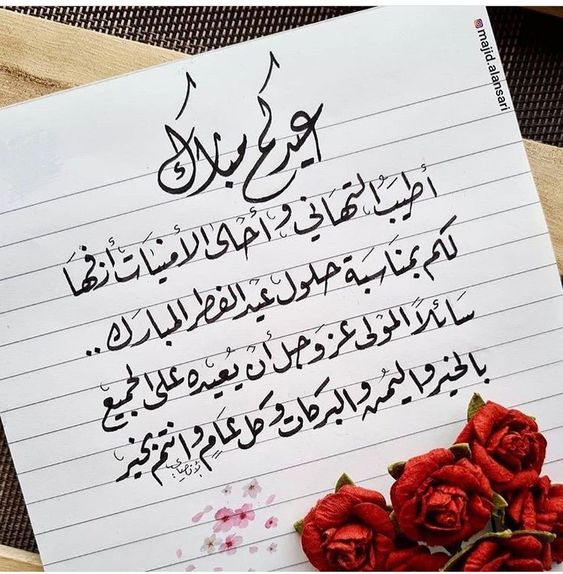 عيدكم مبارك
أطيب التهاني وأحلى الأمنيات أزفها
لكم بمناسبة حلول عيد الفطر المبارك ..
سائلاً المولى عز وجل أن يُعيده على الجميع
بالخير واليمن والبركات وكل عامٍ وانتم بخير
majid.alansari